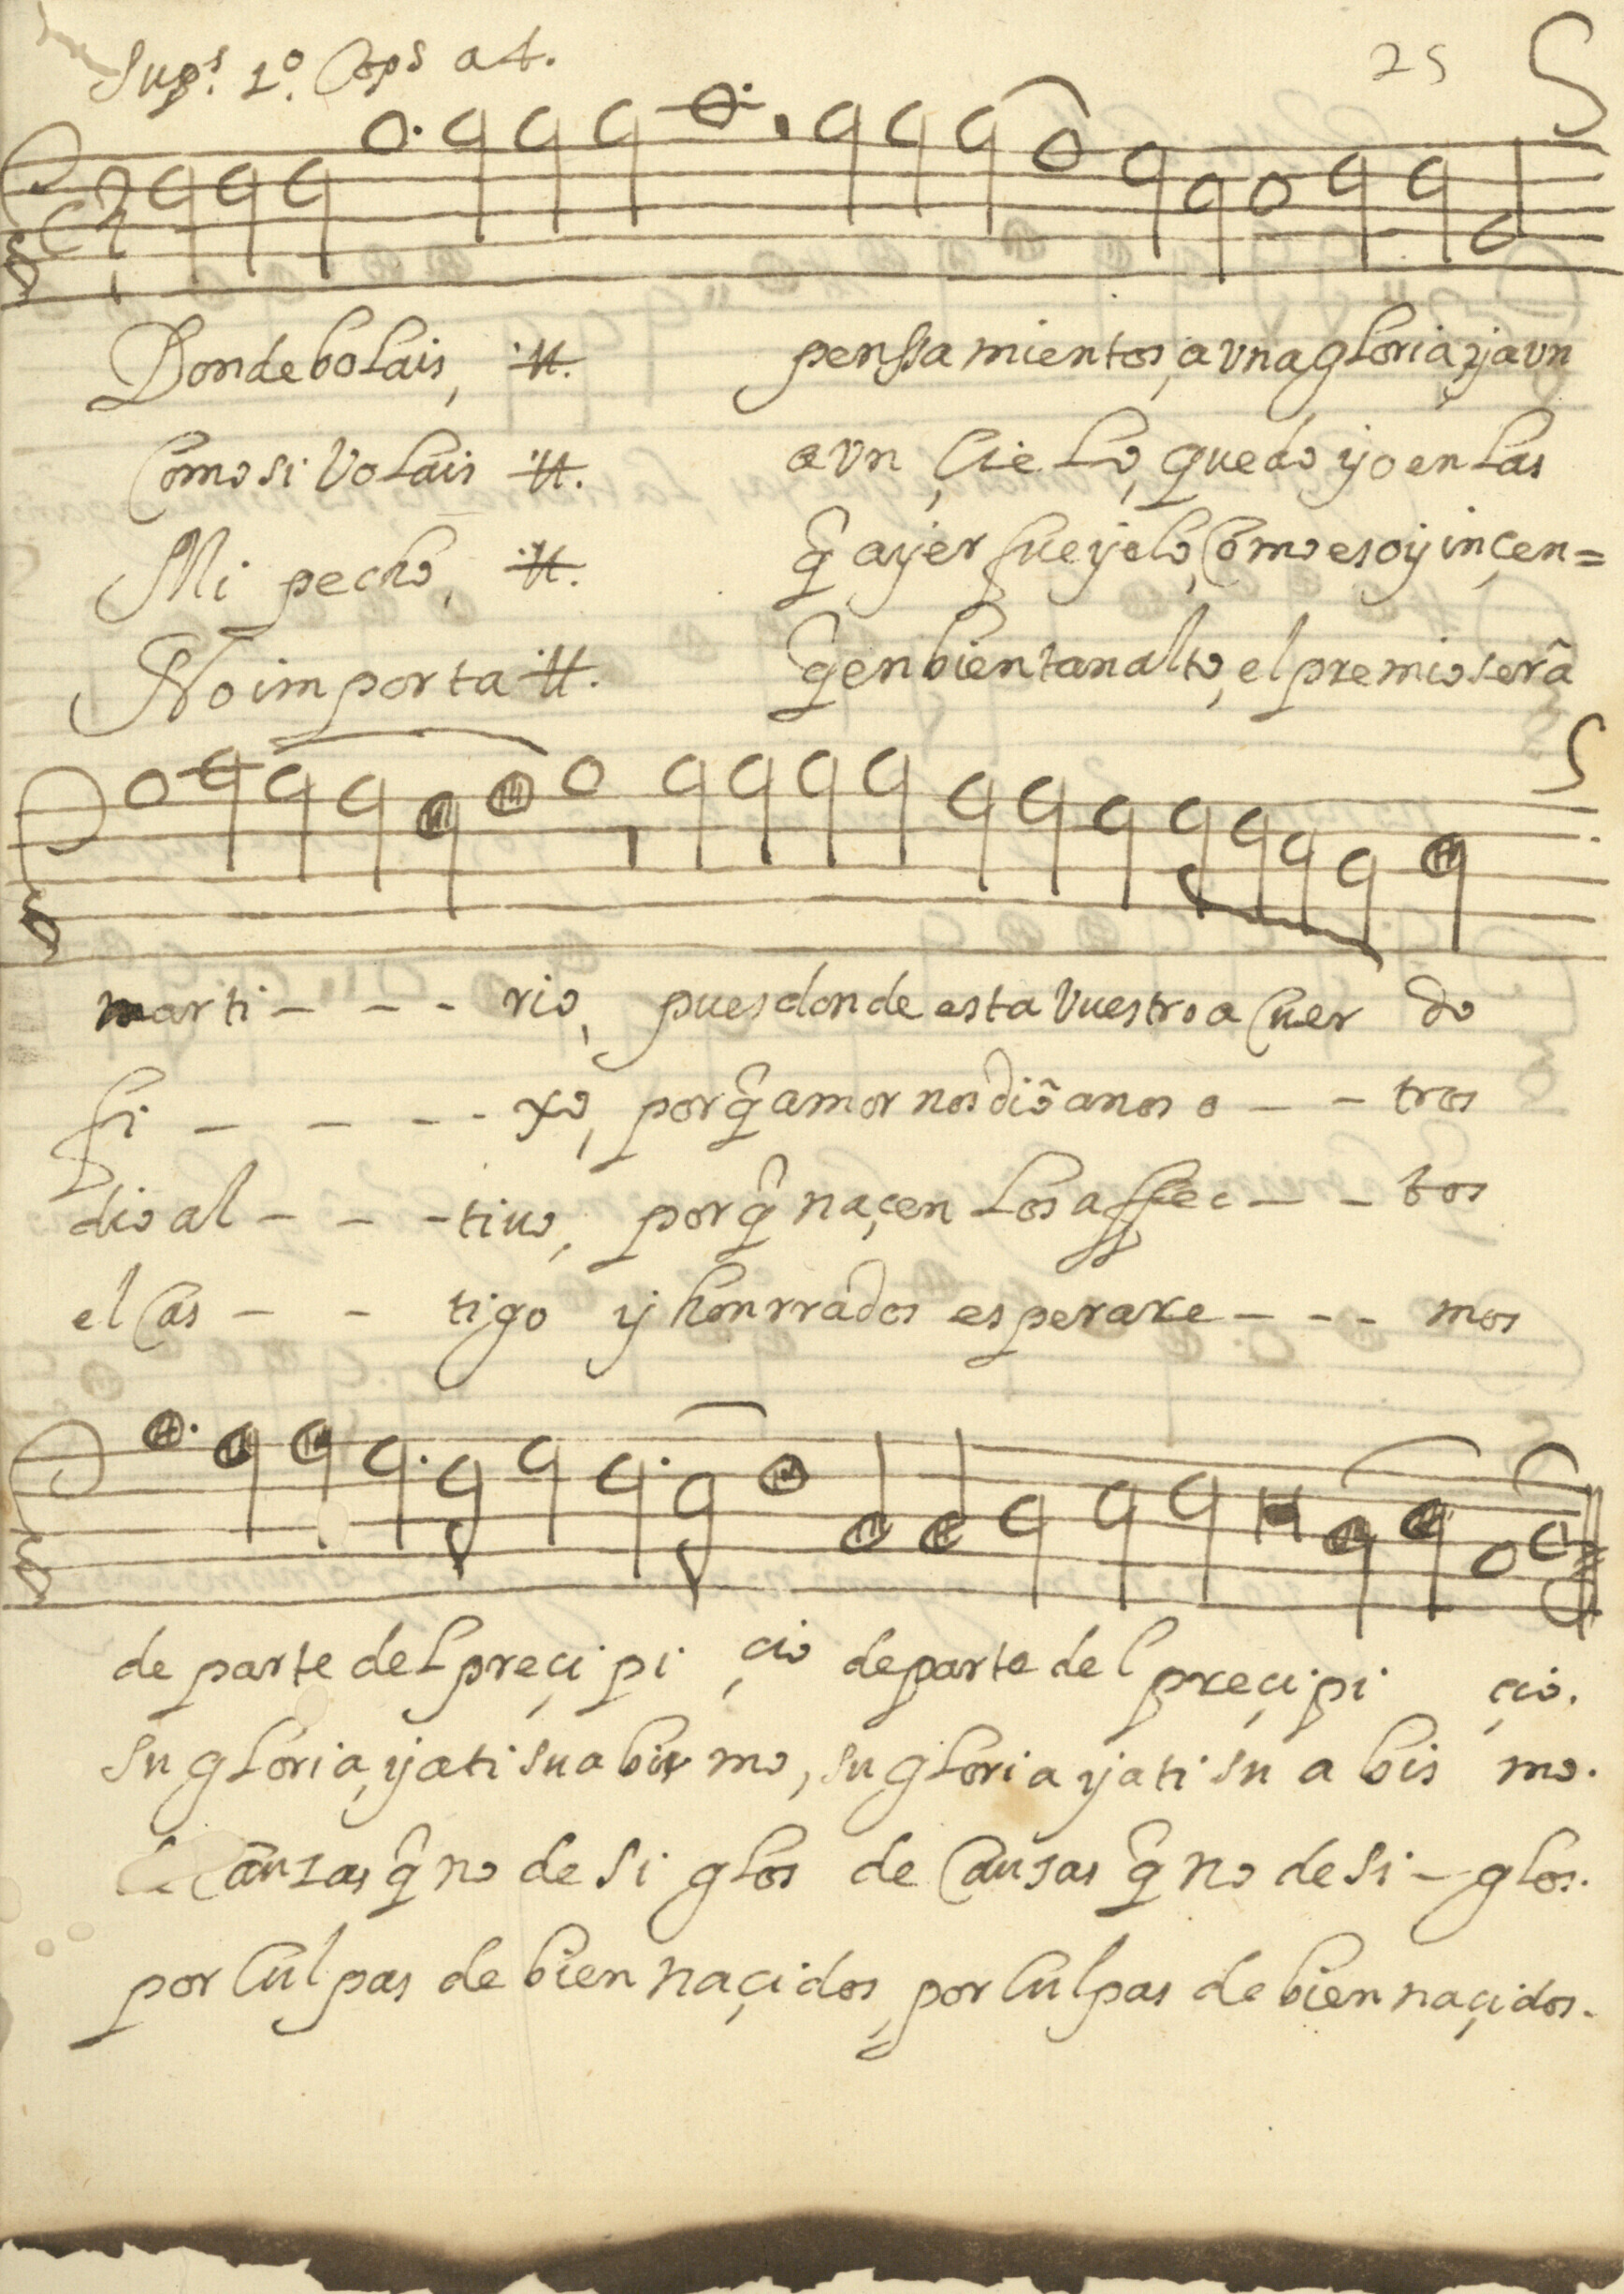 Sups. 1º. Cops a 4.
25
Donde bolais, :||: penssamientos, a vna gloria, y a vn
Como si volais :||: a vn çielo, quedo yo en las
Mi pecho, :||: q̃ ayer fue yelo, Como es oy inçen=
No importa :||: q̃ en bien tan alto, el premio serâ
marti - - - rio, pues donde esta vuestro a Cuer do
fi - - - - xo, porq̃ amor nos diô a noso - - tros
dio al - - - tiuo, porq̃ naçen los affec - - tos
el Cas - - tigo y honrrados esperare - - - mos
de parte del preçipi çio de parte del preçipi çio.
su gloria, y a ti su abis mo, su gloria y a ti su abis mo.
de Causas q̃ no de si glos de Causas q̃ no de si - glos.
por Culpas de bien naçidos, por Culpas de bien naçidos.